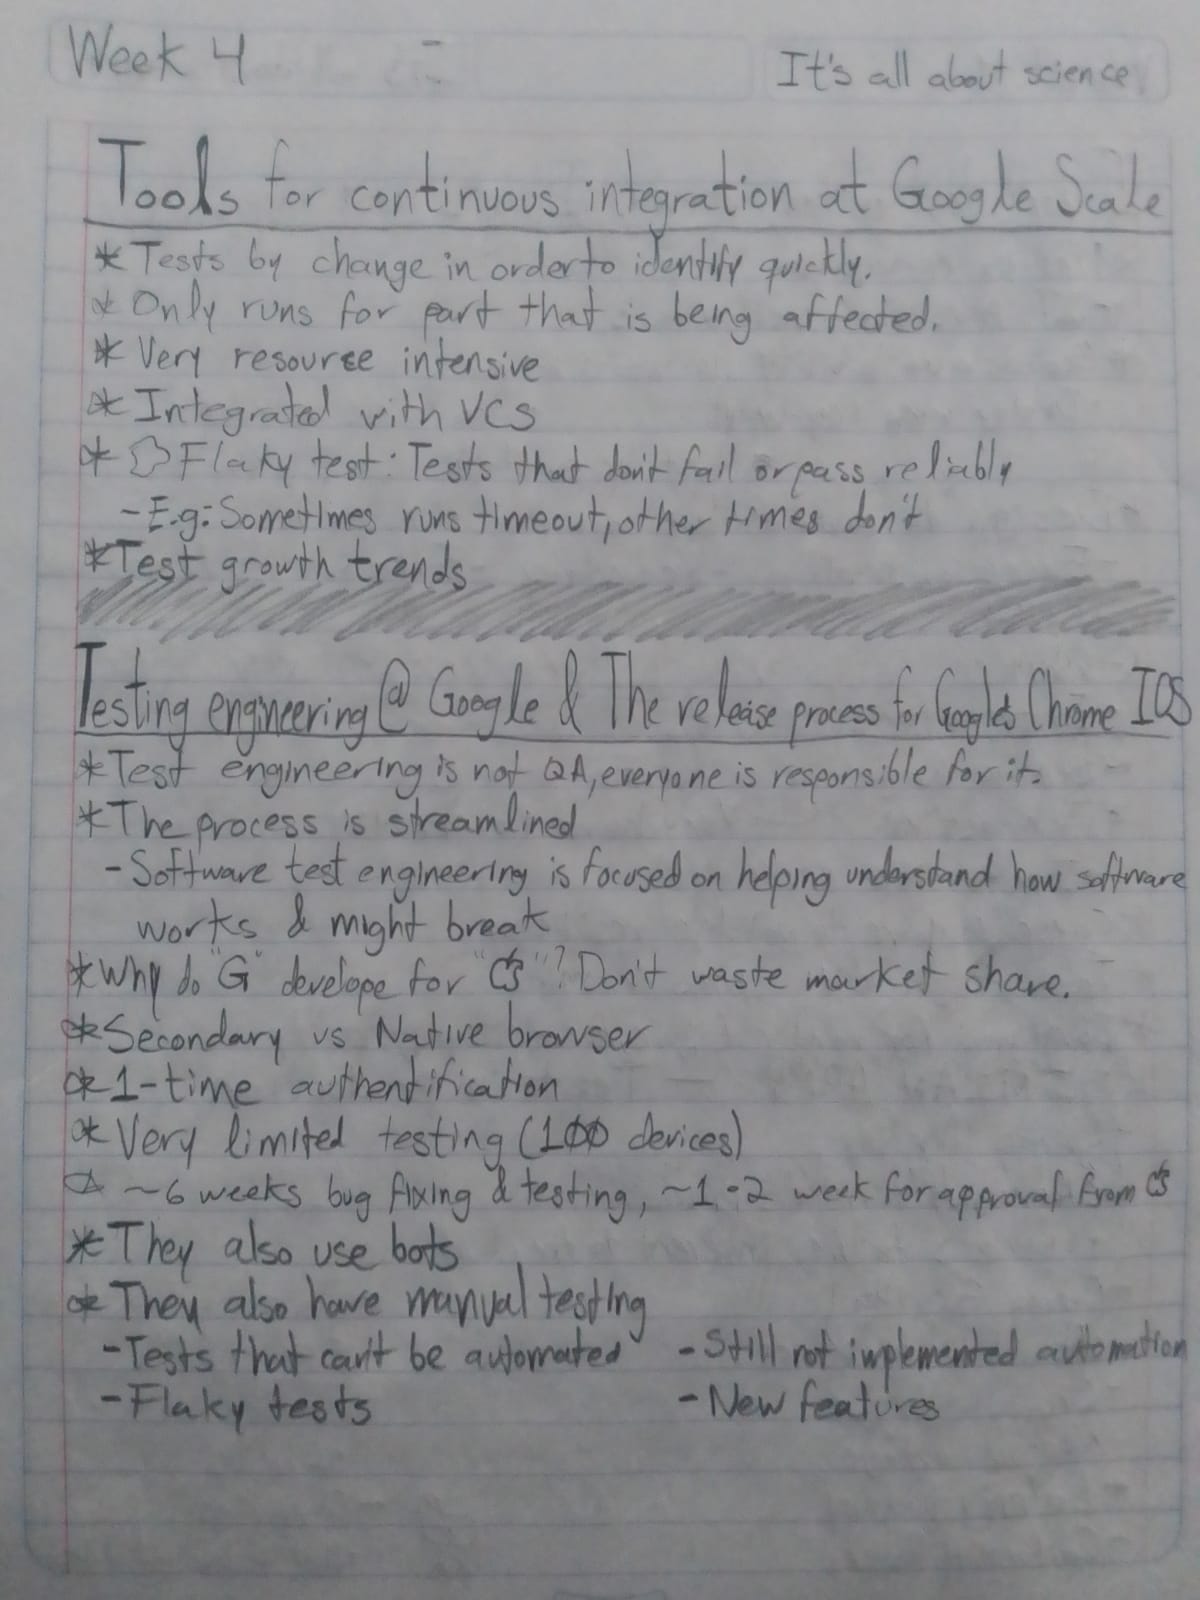 Week 4
It's all about science
Tools for continuous integration at Google Scale
* Tests by change in order to identify quickly.
* Only runs for part that is being affected.
* Very resource intensive
* Integrated with VCS
* Flaky test: Tests that don't fail or pass reliably
- E.g: Sometimes runs timeout, other times don't
* Test growth trends
Testing engineering @ Google & The release process for Google's Chrome IOS
* Test engineering is not QA, everyone is responsible for it.
* The process is streamlined
- Software test engineering is focused on helping understand how software
works & might break
* Why do "G" develope for " "? Don't waste market share.
* Secondary vs Native browser
* 1-time authentification
* Very limited testing (100 devices)
~6 weeks bug fixing & testing, ~1-2 week for approval from
* They also use bots
* They also have manual testing
- Tests that can't be automated - Still not implemented automation
- Flaky tests - New features